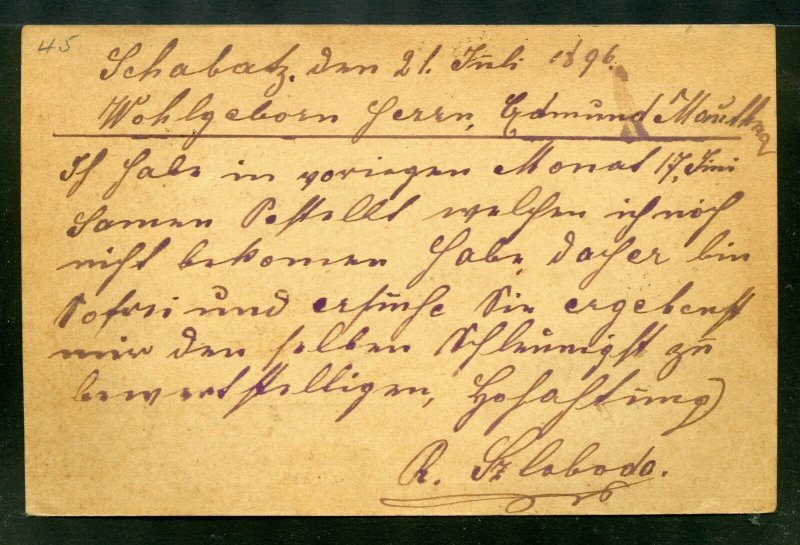 45
Schabatz, den 21. Juli 1896.
Wohlgeborn Herrn, Edmund Mauthner
Ich habe in vorigen Monat 17. Juni
Samen bestellt welchen ich noch
nicht bekomen habe, daher bin
so frei und ersuche Sie ergebenst
mir den selben schleunigst zu
bewertstelligen, Hochachtung
R. Szlobodo.